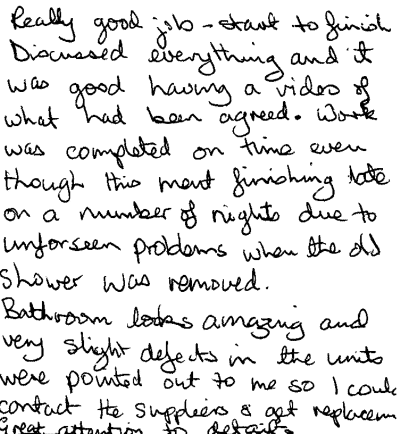 Really good job - start to finish
Discussed everything and it
was good having a video of
what had been agreed. Work
was completed on time even
though this meant finishing late
on a number of nights due to
unforseen problems when the old
shower was removed.
Bathroom looks amazing and
very slight defects in the units
were pointed out to me so I could
contact the suppliers & get replacem
Great attention to details